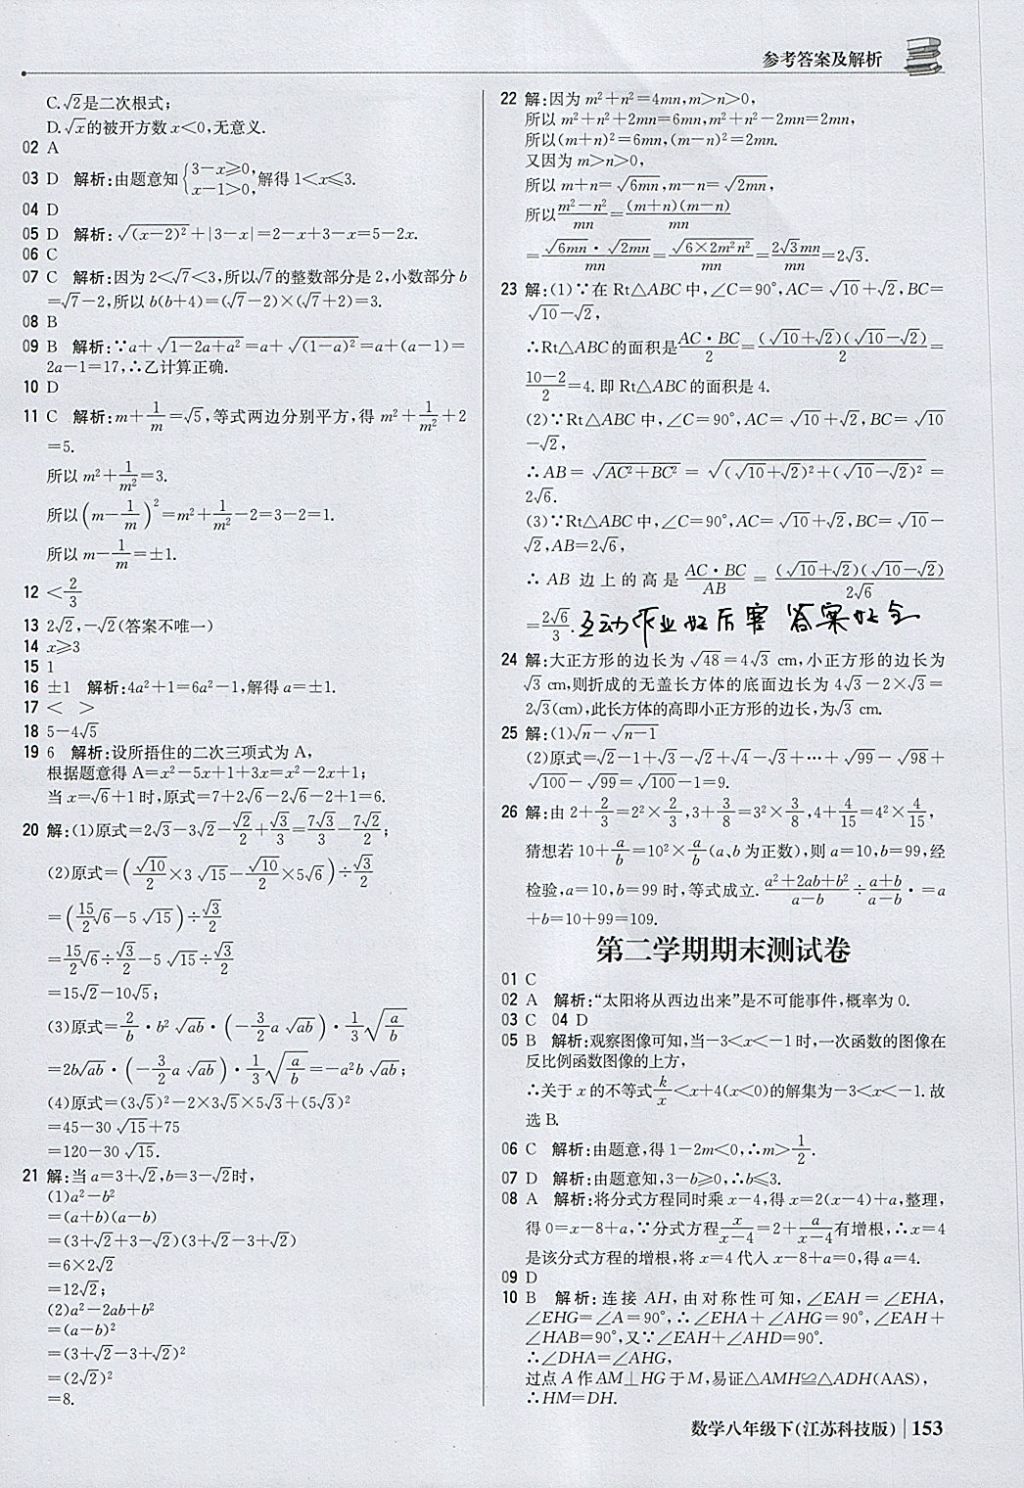 参考答案及解析
C.√2是二次根式;
D.√x的被开方数x<0,无意义.
02 A
03 D 解析:由题意知{3-x⩾0, x-1>0,解得1<x⩽3.
04 D
05 D 解析:√(x-2)²+|3-x|=2-x+3-x=5-2x.
06 C
07 C 解析:因为2<√7<3,所以√7的整数部分是2,小数部分b
=√7-2,所以b(b+4)=(√7-2)×(√7+2)=3.
08 B
09 B 解析:∵a+√(1-2a+a²)=a+√(1-a)²=a+(a-1)=
2a-1=17,∴乙计算正确.
10 D
11 C 解析:m+1/m=√5,等式两边分别平方,得m²+1/m²+2
=5.
所以m²+1/m²=3.
所以(m-1/m)²=m²+1/m²-2=3-2=1.
所以m-1/m=±1.
12 <2/3
13 2√2,-√2(答案不唯一)
14 x⩾3
15 1
16 ±1 解析:4a²+1=6a²-1,解得a=±1.
17 < >
18 5-4√5
19 6 解析:设所捂住的二次三项式为A,
根据题意得A=x²-5x+1+3x=x²-2x+1;
当x=√6+1时,原式=7+2√6-2√6-2+1=6.
20 解:(1)原式=2√3-3√2-√2/2+√3/3=7√3/3-7√2/2;
(2)原式=(√10/2×3√15-√10/2×5√6)÷√3/2
=(15/2√6-5√15)÷√3/2
=15/2√6÷√3/2-5√15÷√3/2
=15√2-10√5;
(3)原式=2/b·b²√ab·(-3/2a√ab)·1/3√(a/b)
=2b√ab·(-3/2a√ab)·1/3√(a/b)=-a²b√ab;
(4)原式=(3√5)²-2×3√5×5√3+(5√3)²
=45-30√15+75
=120-30√15.
21 解:当a=3+√2,b=3-√2时,
(1)a²-b²
=(a+b)(a-b)
=(3+√2+3-√2)(3+√2-3+√2)
=6×2√2
=12√2;
(2)a²-2ab+b²
=(a-b)²
=(3+√2-3+√2)²
=(2√2)²
=8.
22 解:因为m²+n²=4mn,m>n>0,
所以m²+n²+2mn=6mn,m²+n²-2mn=2mn,
所以(m+n)²=6mn,(m-n)²=2mn.
又因为m>n>0,
所以m+n=√6mn,m-n=√2mn,
所以(m²-n²)/mn=(m+n)(m-n)/mn
=√6mn·√2mn/mn=√(6×2m²n²)/mn=2√3mn/mn=2√3.
23 解:(1)∵在Rt△ABC中,∠C=90°,AC=√10+√2,BC=
√10-√2,
∴Rt△ABC的面积是AC·BC/2=(√10+√2)(√10-√2)/2=
(10-2)/2=4.即Rt△ABC的面积是4.
(2)∵Rt△ABC中,∠C=90°,AC=√10+√2,BC=√10
-√2,
∴AB=√(AC²+BC²)=√((√10+√2)²+(√10-√2)²)=
2√6.
(3)∵Rt△ABC中,∠C=90°,AC=√10+√2,BC=√10-
√2,AB=2√6,
∴AB边上的高是AC·BC/AB=(√10+√2)(√10-√2)/2√6
=2√6/3.互动作业好厉害 答案好全
24 解:大正方形的边长为√48=4√3 cm,小正方形的边长为
√3 cm,则折成的无盖长方体的底面边长为4√3-2×√3=
2√3(cm),此长方体的高即小正方形的边长,为√3 cm.
25 解:(1)√n-√(n-1)
(2)原式=√2-1+√3-√2+√4-√3+…+√99-√98+
√100-√99=√100-1=9.
26 解:由2+2/3=2²×2/3,3+3/8=3²×3/8,4+4/15=4²×4/15,
猜想若10+a/b=10²×a/b(a、b为正数),则a=10,b=99,经
检验,a=10,b=99时,等式成立.(a²+2ab+b²)/(a-b)÷(a+b)/(a-b)·=a
+b=10+99=109.
第二学期期末测试卷
01 C
02 A 解析:“太阳将从西边出来”是不可能事件,概率为0.
03 C 04 D
05 B 解析:观察图像可知,当-3<x<-1时,一次函数的图像在
反比例函数图像的上方,
∴关于x的不等式k/x<x+4(x<0)的解集为-3<x<-1.故
选B.
06 C 解析:由题意,得1-2m<0,∴m>1/2.
07 D 解析:由题意知,3-b⩾0,∴b⩽3.
08 A 解析:将分式方程同时乘x-4,得x=2(x-4)+a,整理,
得0=x-8+a,∵分式方程x/(x-4)=2+a/(x-4)有增根,∴x=4
是该分式方程的增根,将x=4代入x-8+a=0,得a=4.
09 D
10 B 解析:连接AH,由对称性可知,∠EAH=∠EHA,
∠EHG=∠A=90°,∴∠EHA+∠AHG=90°,∠EAH+
∠HAB=90°,又∵∠EAH+∠AHD=90°.
∴∠DHA=∠AHG,
过点A作AM⊥HG于M,易证△AMH≌△ADH(AAS),
∴HM=DH.
数学八年级下(江苏科技版) 153